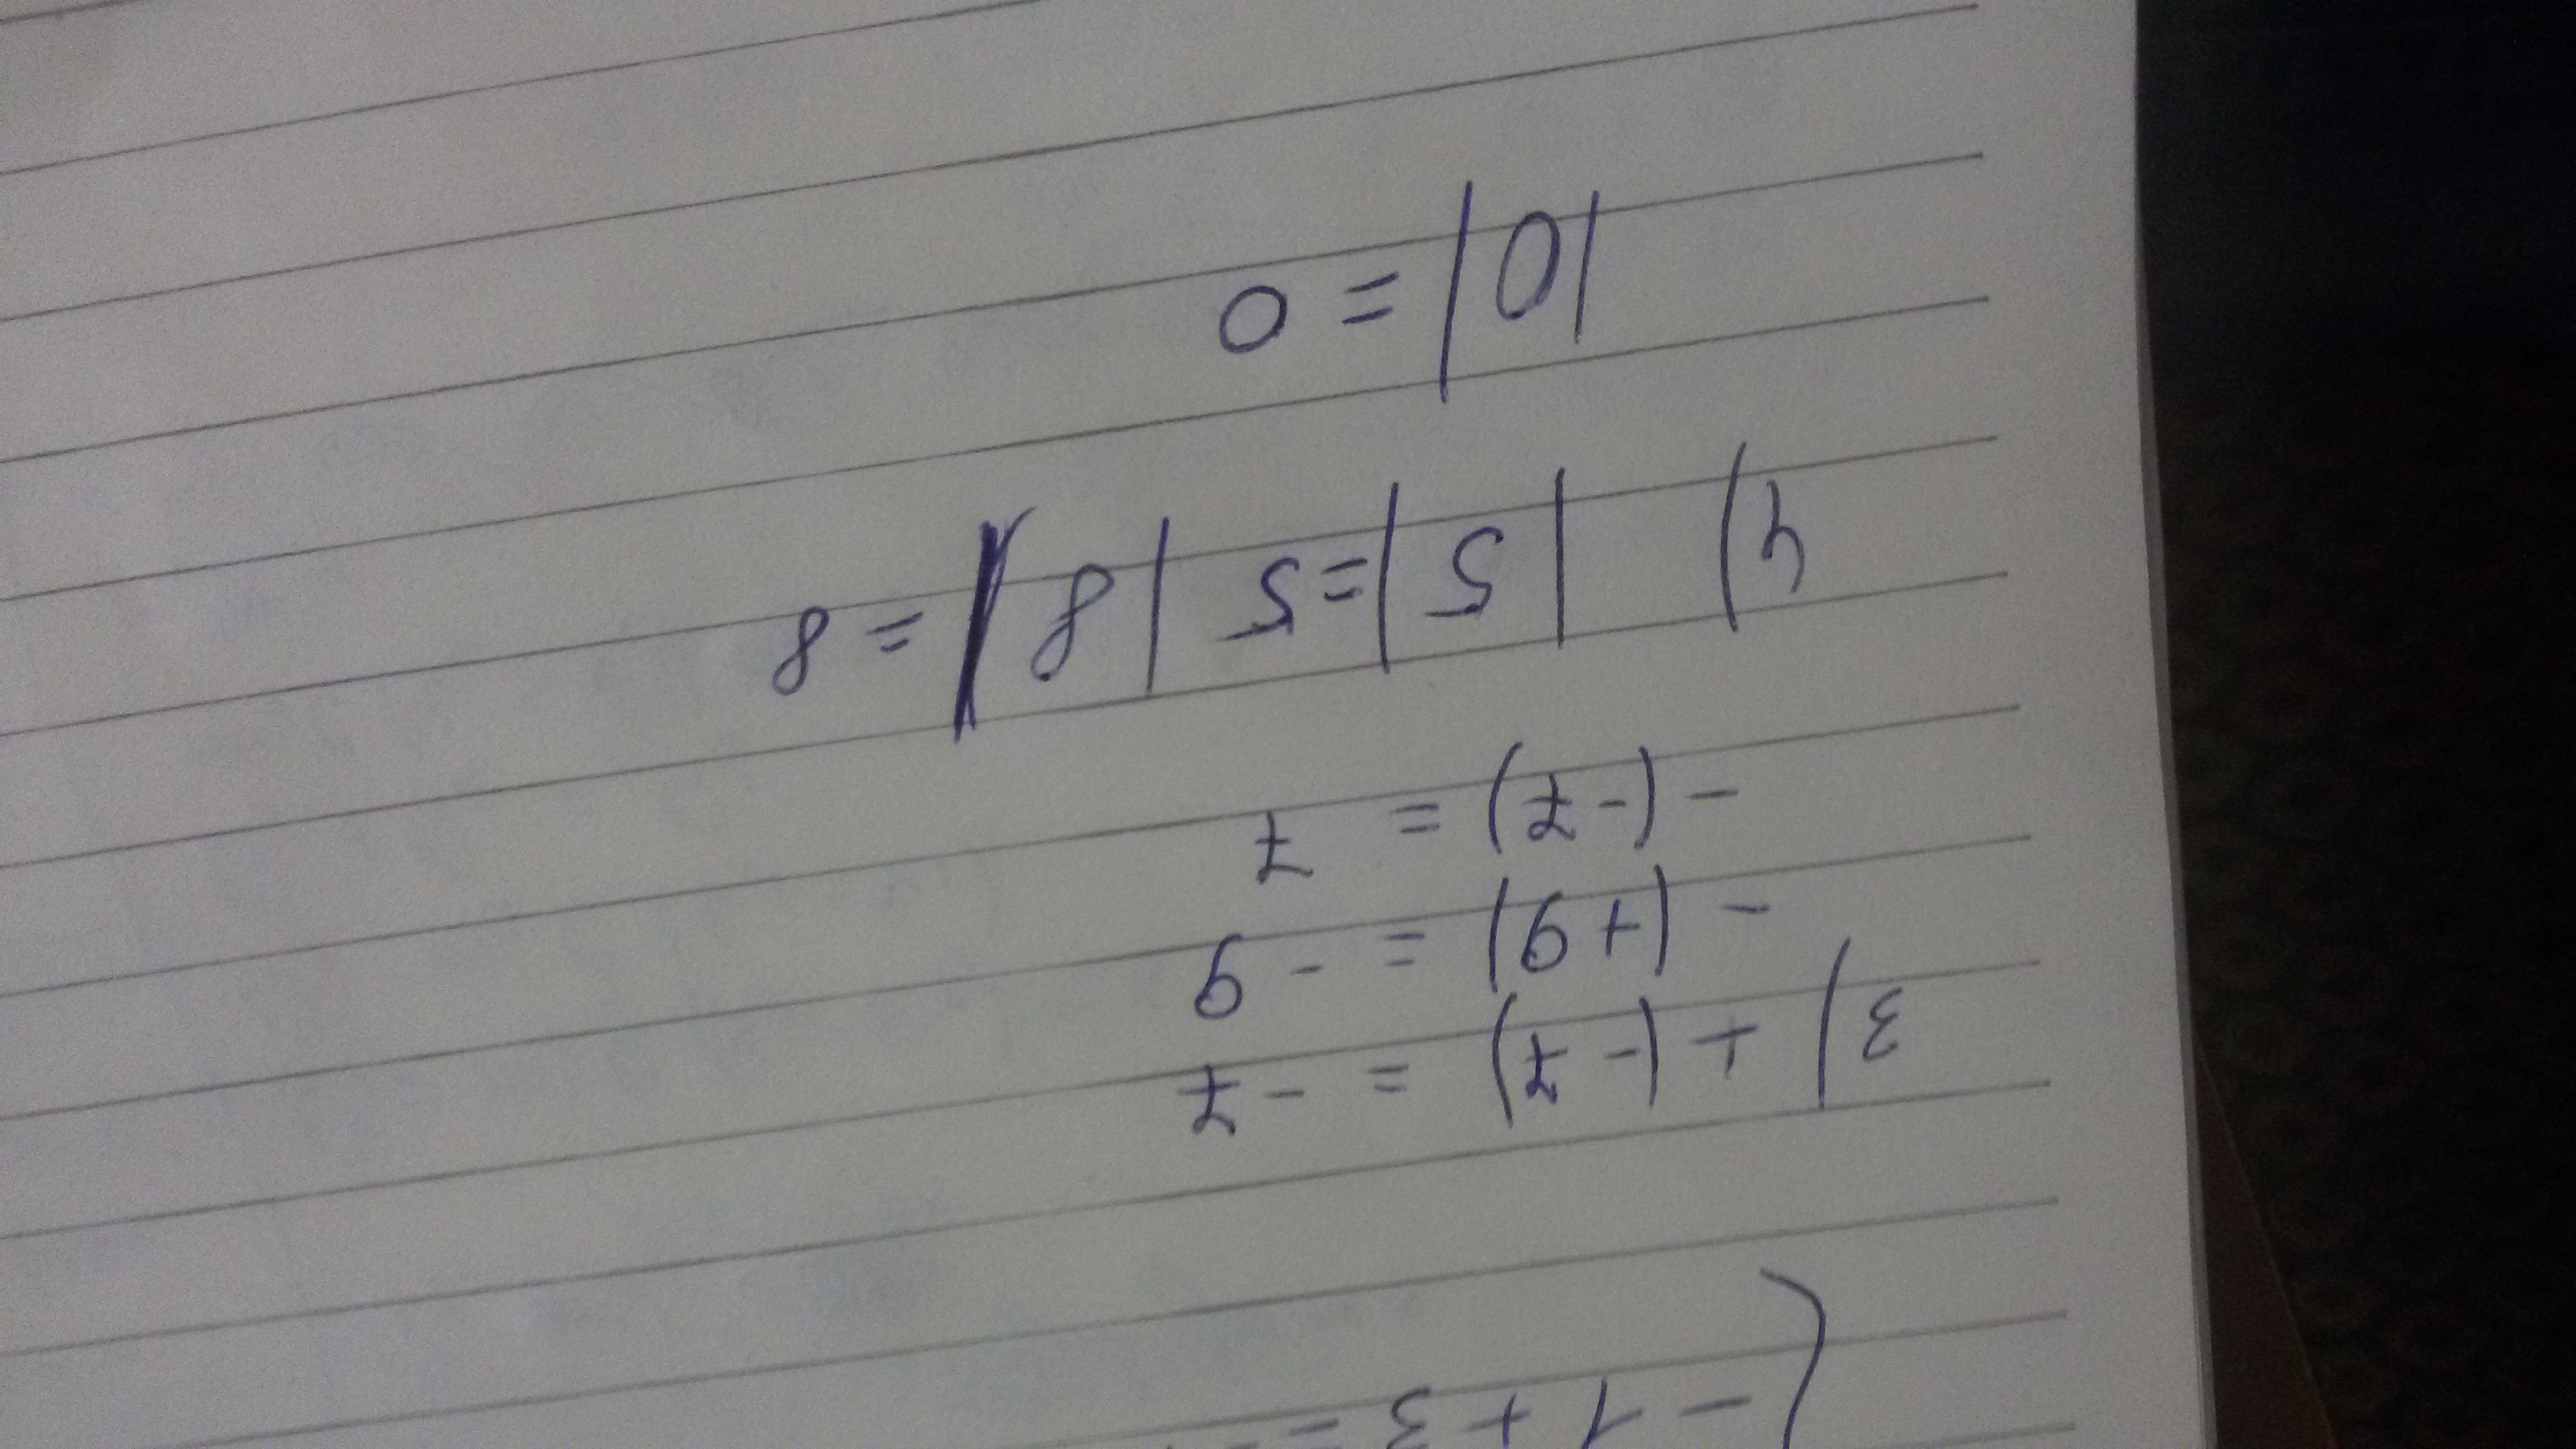 - 1 + 3 =
3) + (- 7) = - 7
- (+ 9) = - 9
- (- 7) = 7
4) | 5 | = 5 | 8 | = 8
| 0 | = 0